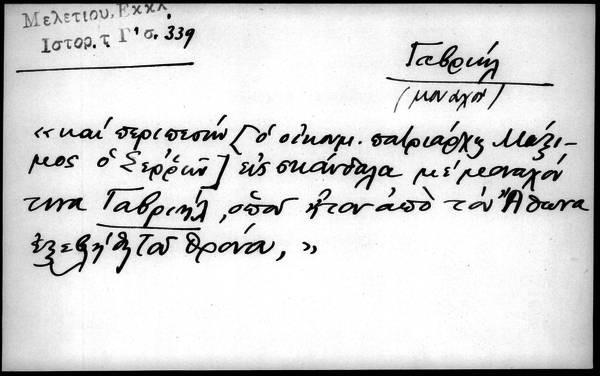 Μελετίου, Εκκλ
Ιστορ. τ. Γ' σ. 339
Γαβριήλ
(μοναχός)
«καί περιπεσών [ὁ οἰκουμ. πατριάρχης Μάξι-
μος ὁ Σερρῶν] εἰς σκάνδαλα μέ μοναχόν
τινα Γαβριήλ, ὁποῦ ἦτον ἀπὸ τὸν Ἄθωνα
ἐξεβλήθη τοῦ θρόνου,»